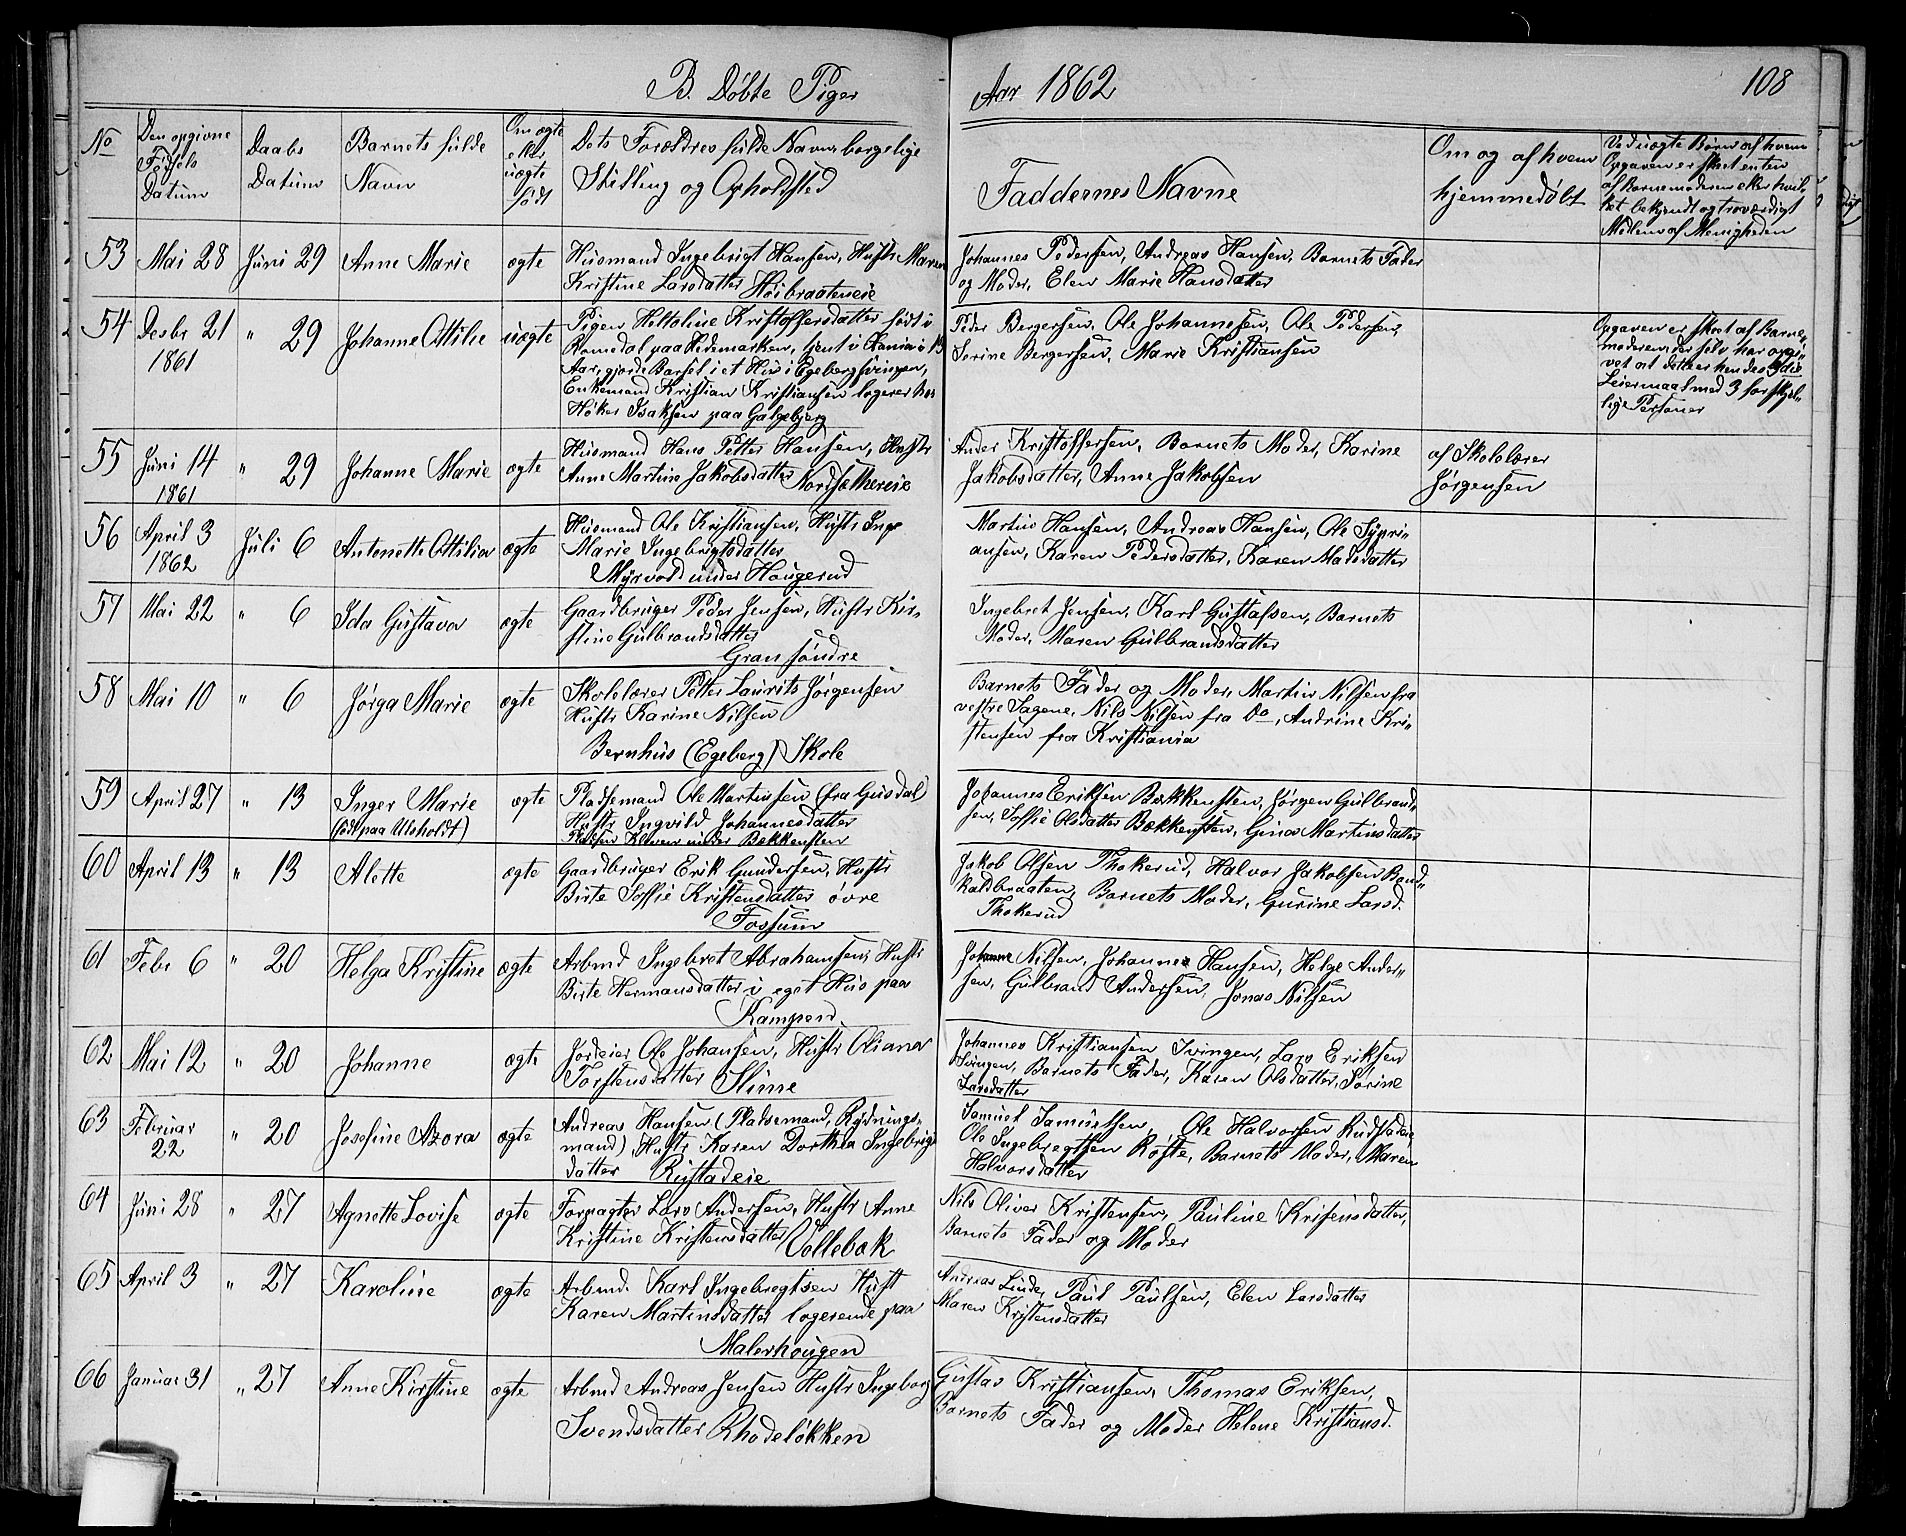 B. Døbte Piger
Aar 1862
108
No
Den opgivne
Fødsels
Datum
Daabs
Datum
Barnets fulde
Navn
Om ægte
eller
uægte
født
Dets Forældres fulde Navn, borgelige
Stilling og Opholdsted
Faddernes Navne
Om og af hvem
hjemmedøbt
Ved uægte Børn af hvem
Opgaven er skeet enten
af Barnemoderen eller hvil-
ket bekjendt og troværdigt
Medlem af Menigheden
53 Mai 28 Juni 29 Anne Marie ægte
Husmand Ingebrigt Hansen, Hustr Maren
Kristine Larsdatter Høibraateneie
Johannes Pedersen, Andreas Hansen, Barnets Fader
og Moder, Elen Marie Hansdatter
54 Desbr 21
1861
" 29 Johanne Ottilie uægte
Pigen Holtoline Kristoffersdatter født i
Romedal paa Hedemarken, tjent i Krania i 13
Aar, gjorde Barsel i et Hus i Egebergsvingen,
Enkemand Kristian Kristiansen logerer hos
Høker Isaksen paa Galgebjerg
Peder Bergersen, Ole Johannesen, Ole Pedersen,
Serine Bergersen, Marie Kristiansen
Opgaven er skeet af Barne,,
moderen, der selv har opgi,,
vet at dette er hendes 3die
Leiermaal med 3 forskjel,,
lige Personer
55 Juni 14
1861
" 29 Johanne Marie ægte
Husmand Hans Petter Hansen, Hustr
Anne Martine Jakobsdatter Nordsethereie
Ander Kristoffersen, Barnets Moder, Karine
Jakobsdatter, Anne Jakobsen
af Skolelærer
Jørgensen
56 April 3
1862
Juli 6 Antonette Ottilia ægte
Husmand Ole Kristiansen, Hustr Inge
Marie Ingebrigtsdatter
Myrvold under Haugerud
Martin Hansen, Andreas Hansen, Ole Sypri-
ansen, Karen Pedersdatter, Karen Madsdatter
57 Mai 22 " 6 Ida Gustava ægte
Gaardbruger Peder Jensen, Hustr Kir-
stine Gulbrandsdatter
Gran søndre
Ingebret Jensen, Karl Gustafsen, Barnets
Moder, Maren Gulbrandsdatter
58 Mai 10 " 6 Jørga Marie ægte
Skolelærer Petter Laurits Jørgensen
Hustr Karine Nilsen
Bernhus (Egeberg) Skole
Barnets Fader og Moder, Martin Nilsen fra
vestre Sagene, Nils Nilsen fra Do, Andrine Kri-
stensen fra Kristiania
59 April 27 " 13 Inger Marie
(født paa Ulsholdt)
ægte
Pladsemand Ole Martinsen (fra Gusdal)
Hustr Ingvild Johannesdatter
Pladsen Kleven under Bækkensten
Johannes Eriksen Bækkensten, Jørgen Gulbrand-
sen, Soffie Olsdatter Bækkensten, Gina Martinsdatter
60 April 13 " 13 Alette ægte
Gaardbruger Erik Gundersen, Hustr
Birte Soffie Kristensdatter øvre
Fossum
Jakob Olsen Thokerud, Halvor Jakobsen Band-
kaldbraaten, Barnets Moder, Gurine Larsd.
Thokerud
61 Febr 6 " 20 Helga Kristine ægte
Arbmd Ingebret Abrahamsen, Hustr
Birte Hermansdatter i eget Hus paa
Kampen
Johanne Nilsen, Johannes Hansen, Helge Ander-
sen, Gulbrand Andersen, Jonas Nilsen
62 Mai 12 " 20 Johanne ægte
Jordeier Ole Johansen, Hustr Oliana
Torstensdatter Slime
Johannes Kristiansen Svingen, Lars Eriksen
Svingen, Barnets Fader, Karen Olsdatter, Sorine
Larsdatter
63 Februar
22
" 20 Josefine Azora ægte
Andreas Hansen (Pladsemand, Rydnings-
mand), Hustr Karen Dorthea Ingebrigts
datter Rustadeie
Samuel Samuelsen, Ole Halvorsen Rudstadeie
Ole Ingebregtsen Røste, Barnets Moder, Maren
Halvorsdatter
64 Juni 28 " 27 Agnette Lovise ægte
Forpagter Lars Andersen, Hustr Anne
Kristine Kristensdatter Vollebæk
Nils Oliver Kristensen, Pauline Kristensdatter,
Barnets Fader og Moder
65 April 3 " 27 Karoline ægte
Arbmd. Karl Ingebregtsen Hust
Karen Martinsdatter logerende paa
Malerhougen
Andreas Linde, Paul Paulsen, Elen Larsdatter
Maren Kristensdatter
66 Januar 31 " 27 Anne Kirstine ægte
Arbmd Andreas Jensen Hustr Ingeborg
Svendsdatter Rhodeløkken
Gustav Kristiansen, Thomas Eriksen,
Barnets Fader og Moder Helene Kristiansd.